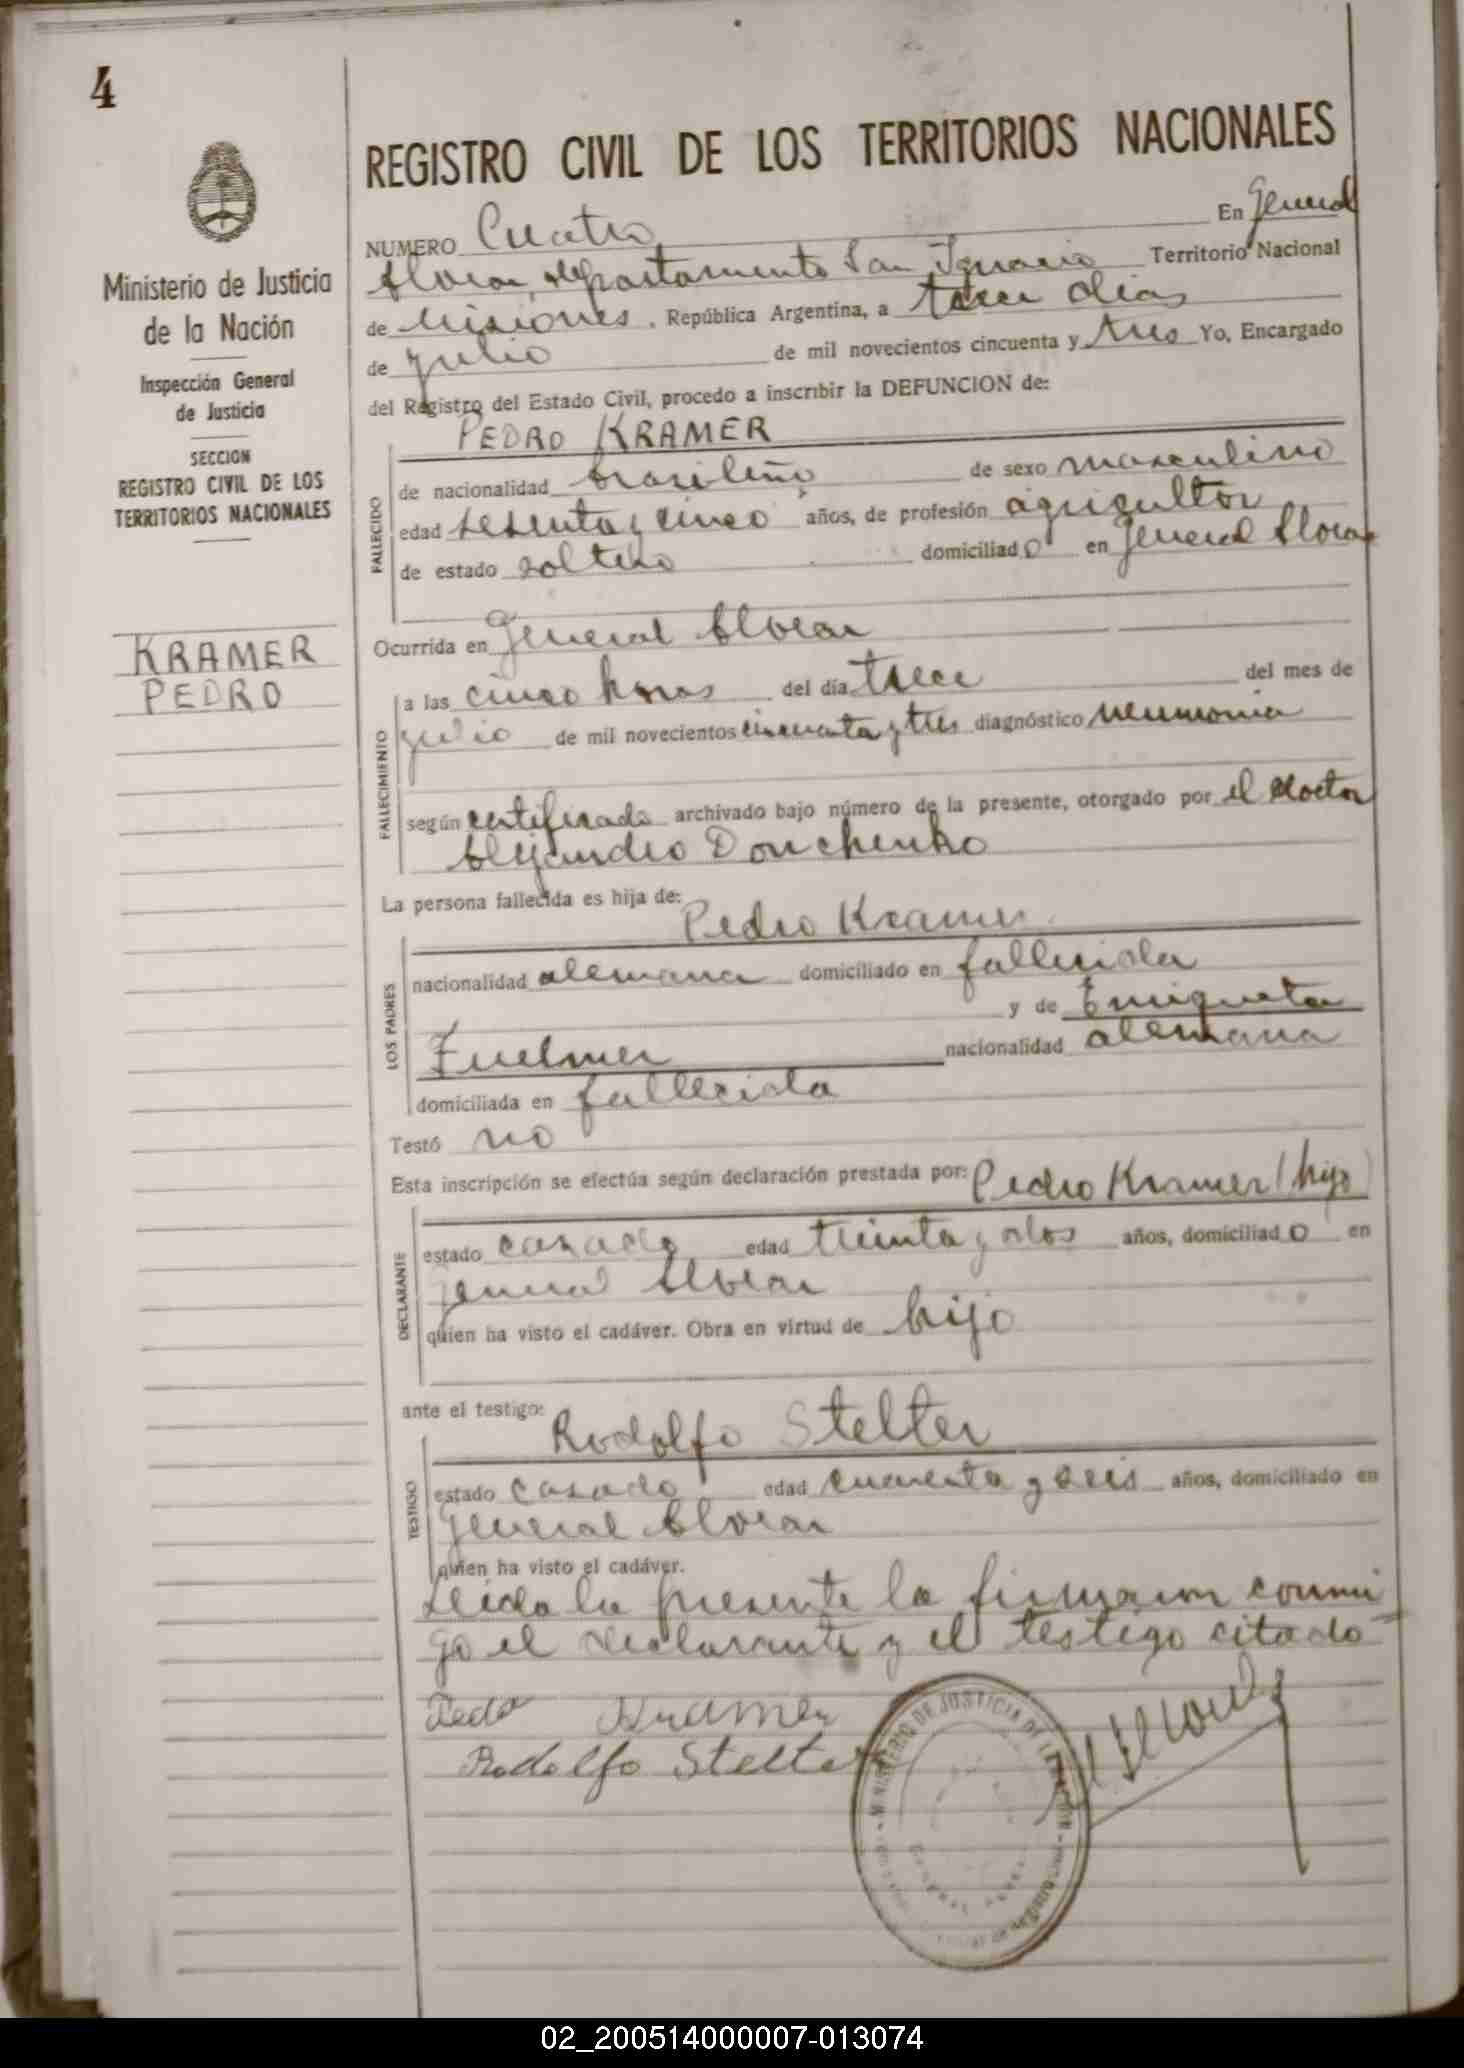 4
Ministerio de Justicia
de la Nación
Inspección General
de Justicia
SECCION
REGISTRO CIVIL DE LOS
TERRITORIOS NACIONALES
KRAMER
PEDRO
REGISTRO CIVIL DE LOS TERRITORIOS NACIONALES
NUMERO Cuatro En General
Alvear, departamento San Ignacio Territorio Nacional
de Misiones. República Argentina, a trece días
de julio de mil novecientos cincuenta y tres Yo, Encargado
del Registro del Estado Civil, procedo a inscribir la DEFUNCION de:
PEDRO KRAMER
FALLECIDO
de nacionalidad brasileño de sexo masculino
edad sesenta y cinco años, de profesión agricultor
de estado soltero domiciliado en General Alvear
Ocurrida en General Alvear
FALLECIMIENTO
a las cinco horas del día trece del mes de
julio de mil novecientos cincuenta y tres diagnóstico neumonia
según certificado archivado bajo número de la presente, otorgado por el doctor
Alejandro Donchenko
La persona fallecida es hija de:
Pedro Kramer
LOS PADRES
nacionalidad alemana domiciliado en fallecida
y de Enriqueta
Fuelmer nacionalidad alemana
domiciliada en fallecida
Testó no
Esta inscripción se efectúa según declaración prestada por: Pedro Kramer (hijo)
DECLARANTE
estado casado edad treinta y dos años, domiciliado en
General Alvear
quien ha visto el cadáver. Obra en virtud de hijo
ante el testigo:
Rodolfo Stelter
TESTIGO
estado casado edad cuarenta y seis años, domiciliado en
General Alvear
quien ha visto el cadáver.
Leída la presente la firmaron conmi
go el declarante y el testigo citado
Pedro Kramer
Rodolfo Stelter
MINISTERIO DE JUSTICIA DE LA NACION
02_200514000007-013074